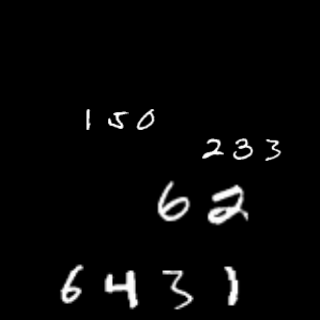 150
233
62
6431